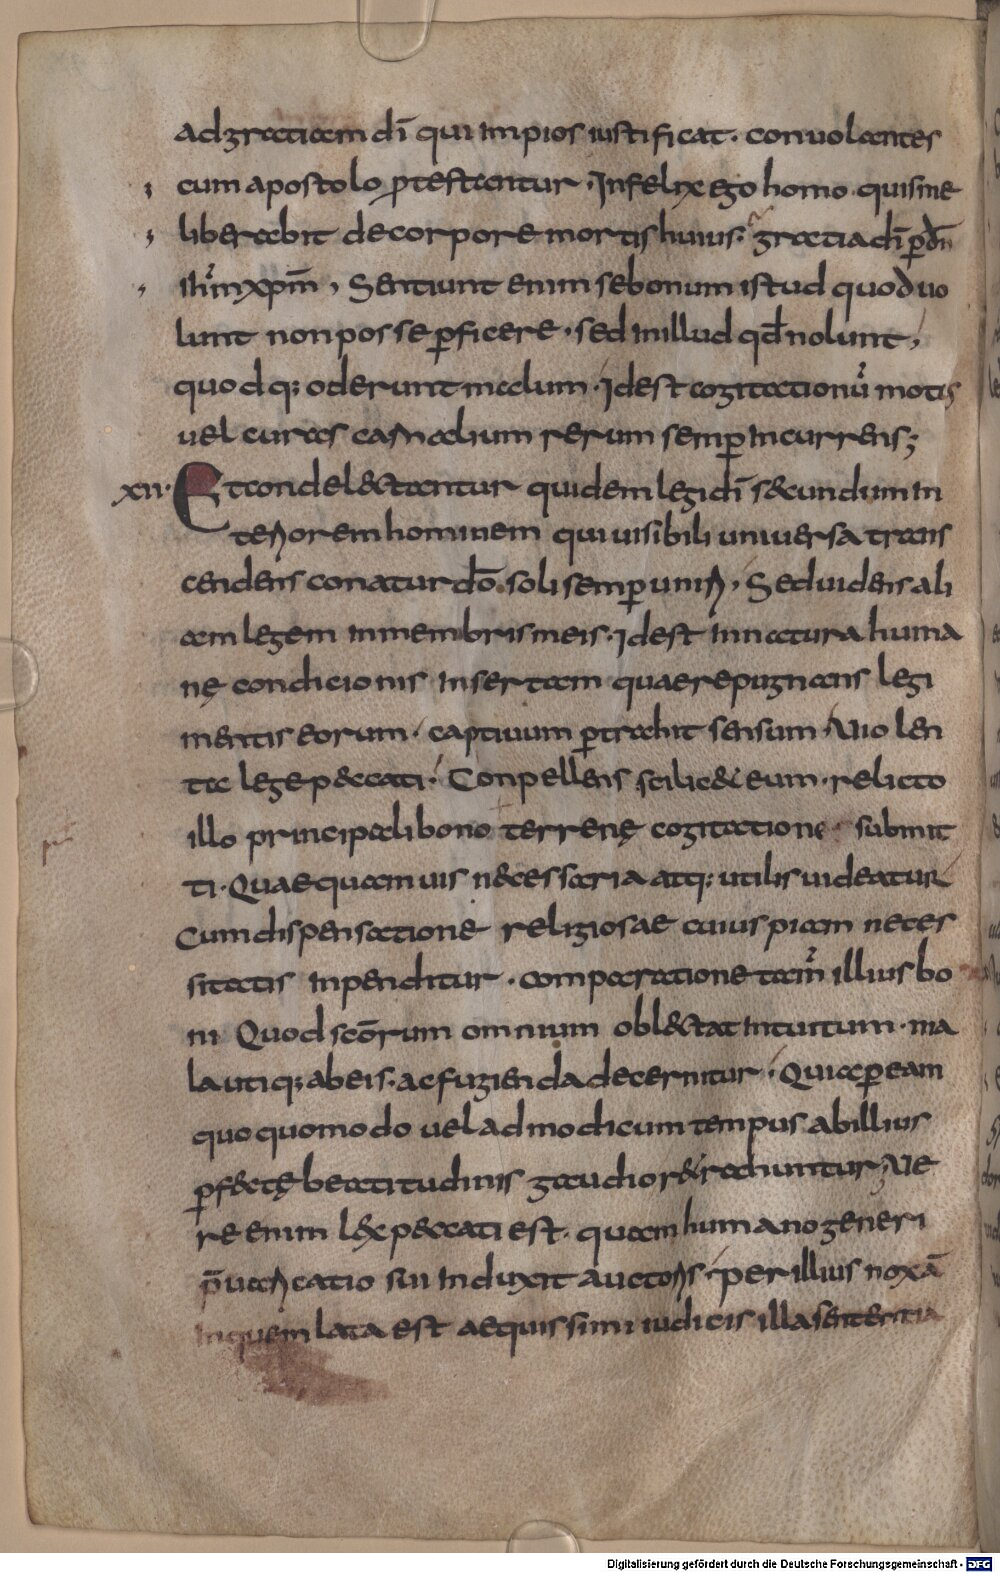 ad gratiam dī qui impios iustificat. conuolantes
cum apostolo ꝓtestantur. Infelix ego homo quis me
liberabit de corpore mortis huius. gratia dī ꝑ dn̄
ihm̄ xpm̄, Sentiunt enim se bonum istud quod uo
lunt non posse ꝑficere. sed in illud qđ nolunt,
quodq; oderunt malum. Idest cogitationū motis
uel curas carnalium rerum semꝑ incurrens;
XII. Et condelectantur quidem legi dī secundum in
teriorem hominem qui uisibili uniuersa trans
cendens conatur dō soli semꝑ uniri, Sed uidens ali
am legem in membris meis. Idest in natura huma
nę condicionis insertam quae repugnans legi
mentis eorum. captiuum ꝑtrahit sensum, Uiolen
ta lege peccati. Conpellens scilicet eum. relicto
illo principali bono terrenę cogitatione submit
ti. Quae quamuis necessaria atq; utilis uideatur
Cum dispensatione religiosae cuiuspiam neces
sitatis inpenditur. comparatione tam̄ illius bo
ni Quod scōrum omnium oblectat intuitum. ma
la utiq; ab eis. ac fugienda decernitur. Quia ꝑ eam
quoquomodo uel ad modicum tempus ab illius
ꝑfectę beatitudinis gaudio retrahuntur, Ue
re enim lex peccati est. quam humano generi
p̄uaricatio sui induxit auctoris. per illius noxā
In quem lata est aequissimi iudicis illa sententia
Digitalisierung gefördert durch die Deutsche Forschungsgemeinschaft - DFG